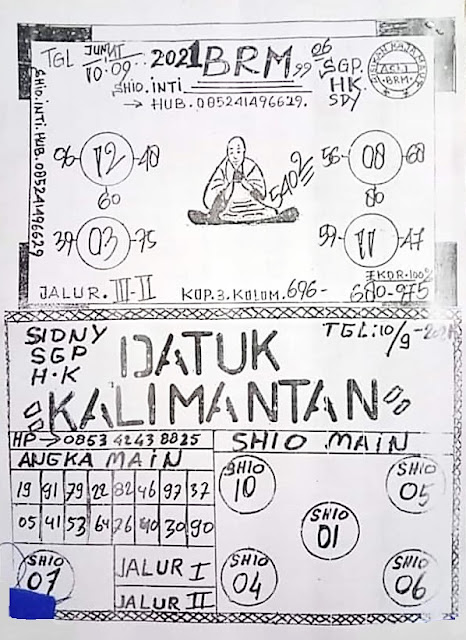 TGL JUM'AT 2021 BRM 99 06
10.09
SHIO.INTI
SGP.
HK
SDY
→ HUB. 085241496629.
ASLI
-BRM-
SHIO.INTI.HUB.085241496629
96 12 48
60
56 08 68
80
5402
39 03 75
59 11 47
EKOR.100%
JALUR. III-II KOP.3.KOLOM. 696- 680-975
SIDNY
SGP
H.K
TGL:10/9-2021
DATUK
KALIMANTAN
HP → 0853 4243 8825
SHIO MAIN
ANGKA MAIN
19 91 79 22 82 46 97 37
05 41 53 64 26 40 30 90
SHIO 10
SHIO 05
SHIO 01
SHIO 07
JALUR I
JALUR II
SHIO 04
SHIO 06